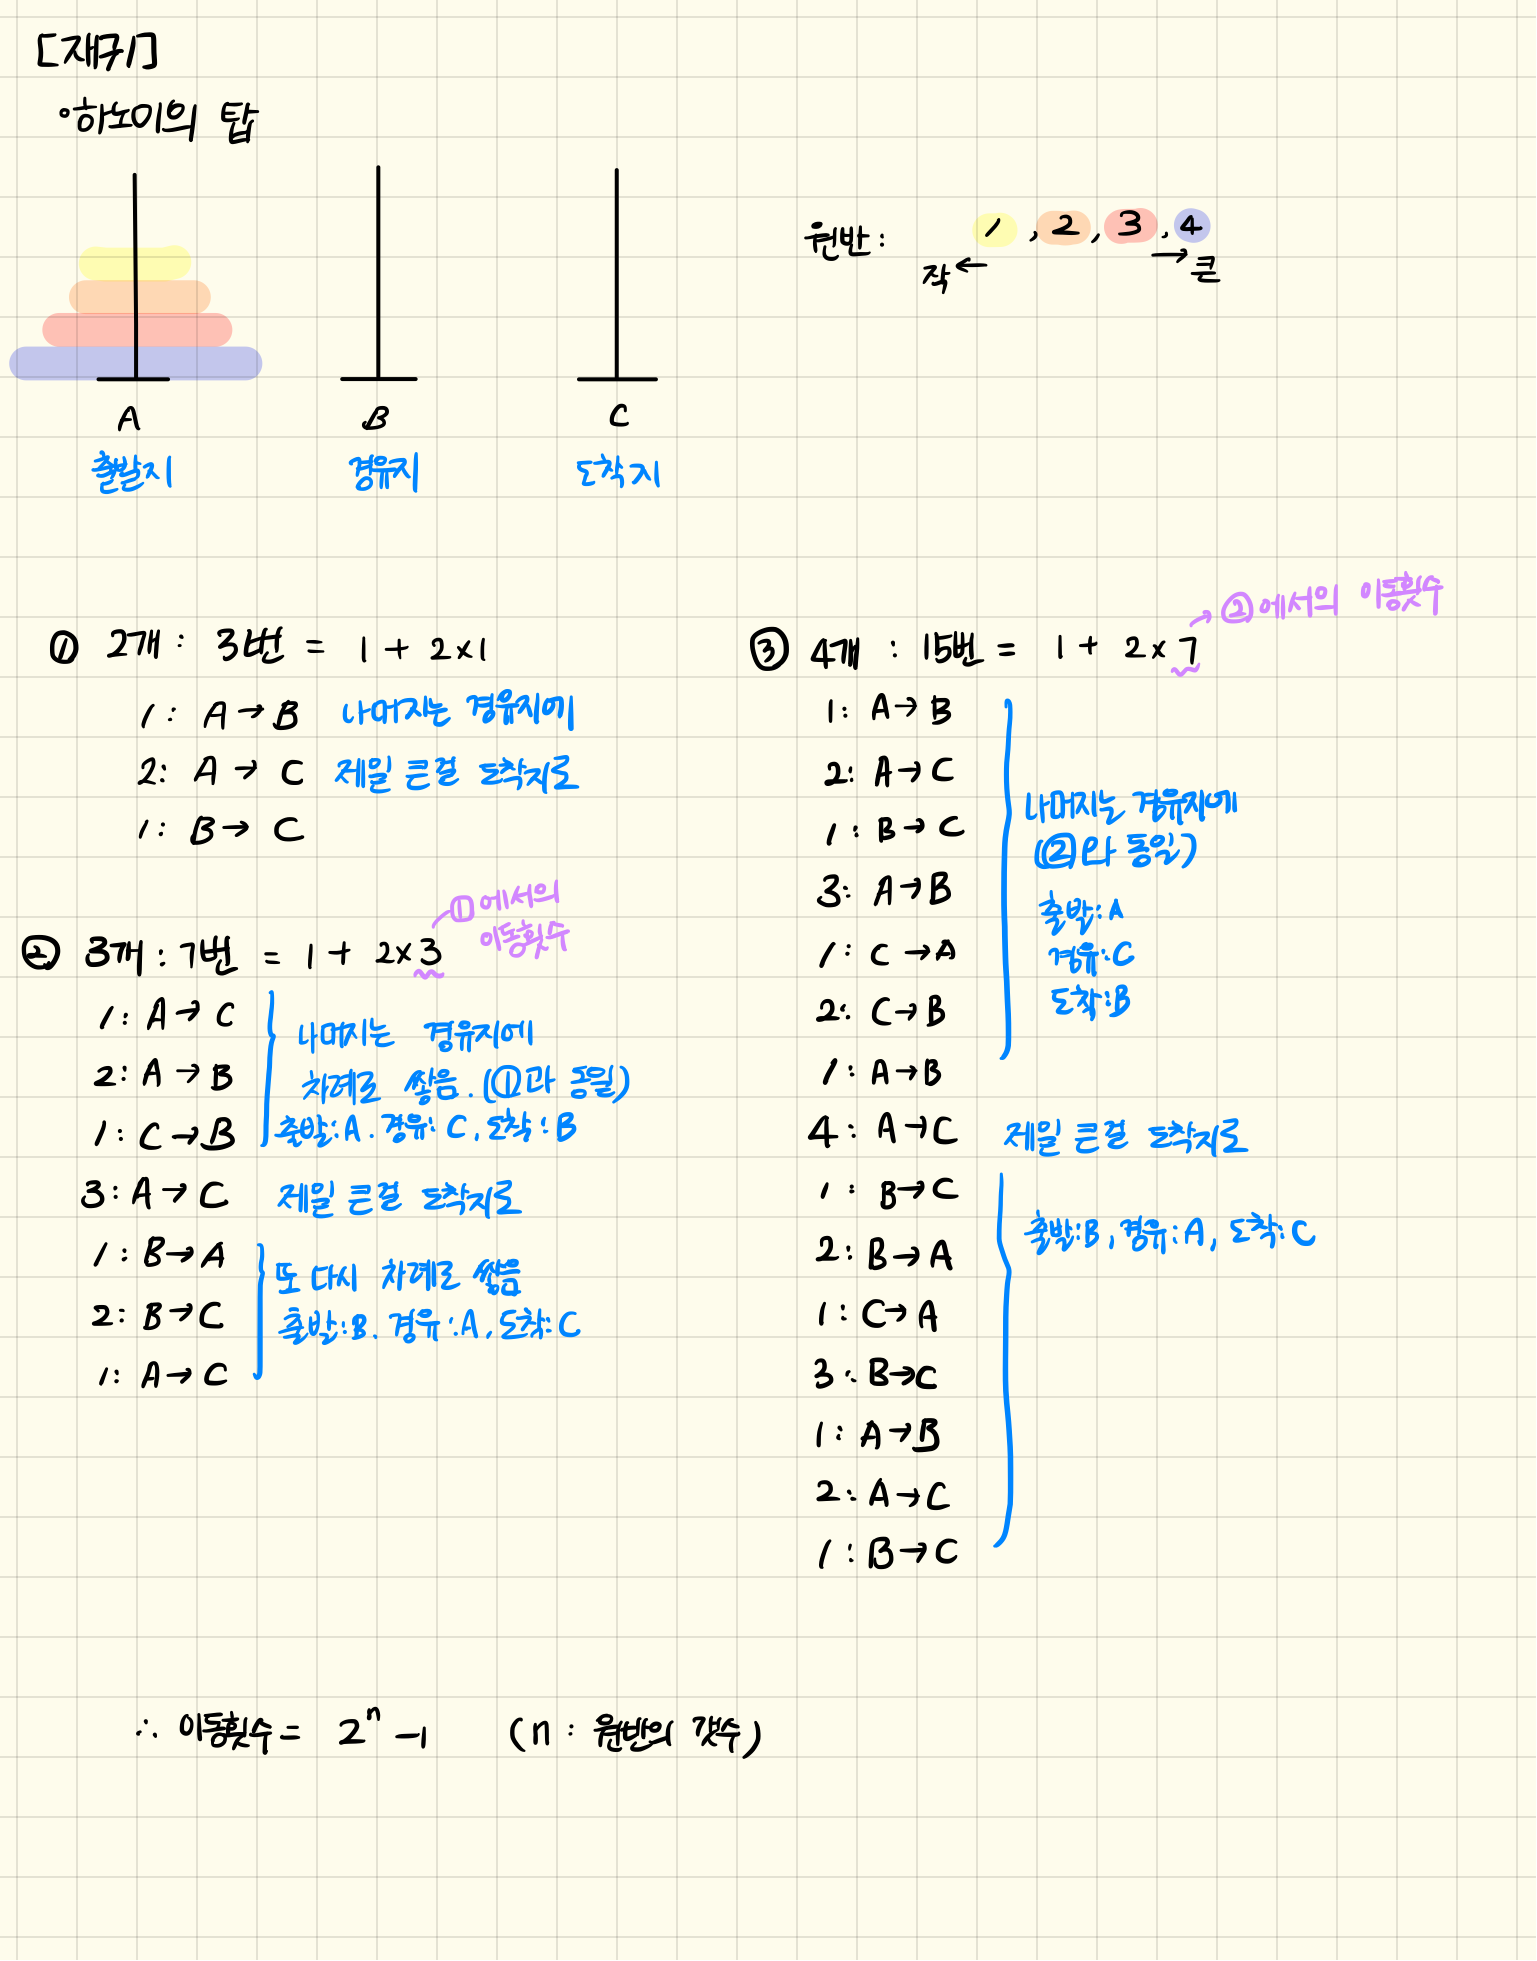 [재귀]
• 하노이의 탑
원반: 1, 2, 3, 4
작 ← →큰
A B C
출발지 경유지 도착지
① 2개: 3번 = 1 + 2×1
1: A → B 나머지는 경유지에
2: A → C 제일 큰걸 도착지로
1: B → C
② 3개: 7번 = 1 + 2×3
①에서의
이동횟수
1: A → C
2: A → B
1: C → B
나머지는 경유지에
차례로 쌓음. (①과 동일)
출발:A. 경유:C, 도착:B
3: A → C 제일 큰걸 도착지로
1: B → A
2: B → C
1: A → C
또 다시 차례로 쌓음
출발:B. 경유:A, 도착:C
③ 4개: 15번 = 1 + 2×7
→ ②에서의 이동횟수
1: A → B
2: A → C
1: B → C
3: A → B
1: C → A
2: C → B
1: A → B
나머지는 경유지에
(②와 동일)
출발:A
경유:C
도착:B
4: A → C 제일 큰걸 도착지로
1: B → C
2: B → A
1: C → A
3: B → C
1: A → B
2: A → C
1: B → C
출발:B, 경유:A, 도착:C
∴ 이동횟수 = 2ⁿ - 1 (n: 원반의 갯수)